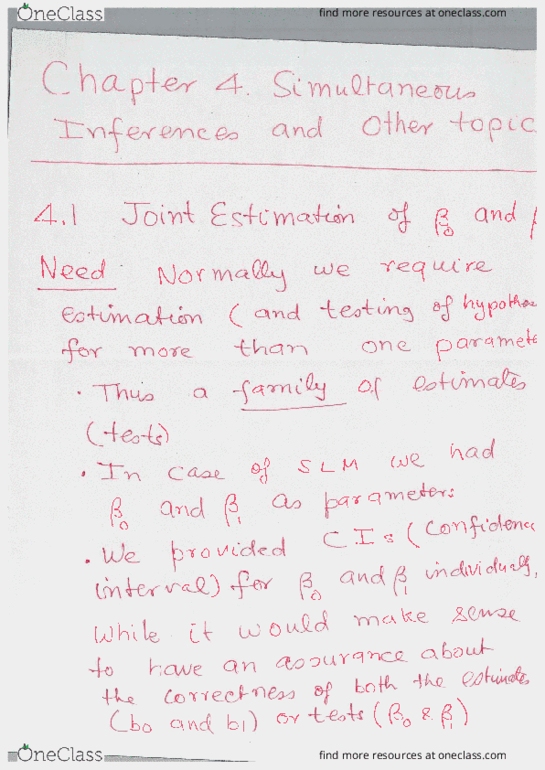 OneClass
find more resources at oneclass.com
Chapter 4. Simultaneous
Inferences and Other topic
4.1 Joint Estimation of β0 and β
Need: Normally we require
estimation (and testing of hypothe
for more than one paramete
· Thus a family of estimates
(tests)
· In case of SLM we had
β0 and β1 as parameters
· We provided CIs (Confidence
interval) for β0 and β1 individually,
while it would make sense
to have an assurance about
the correctness of both the estimates
(b0 and b1) or tests (β0 & β1)
OneClass
find more resources at oneclass.com